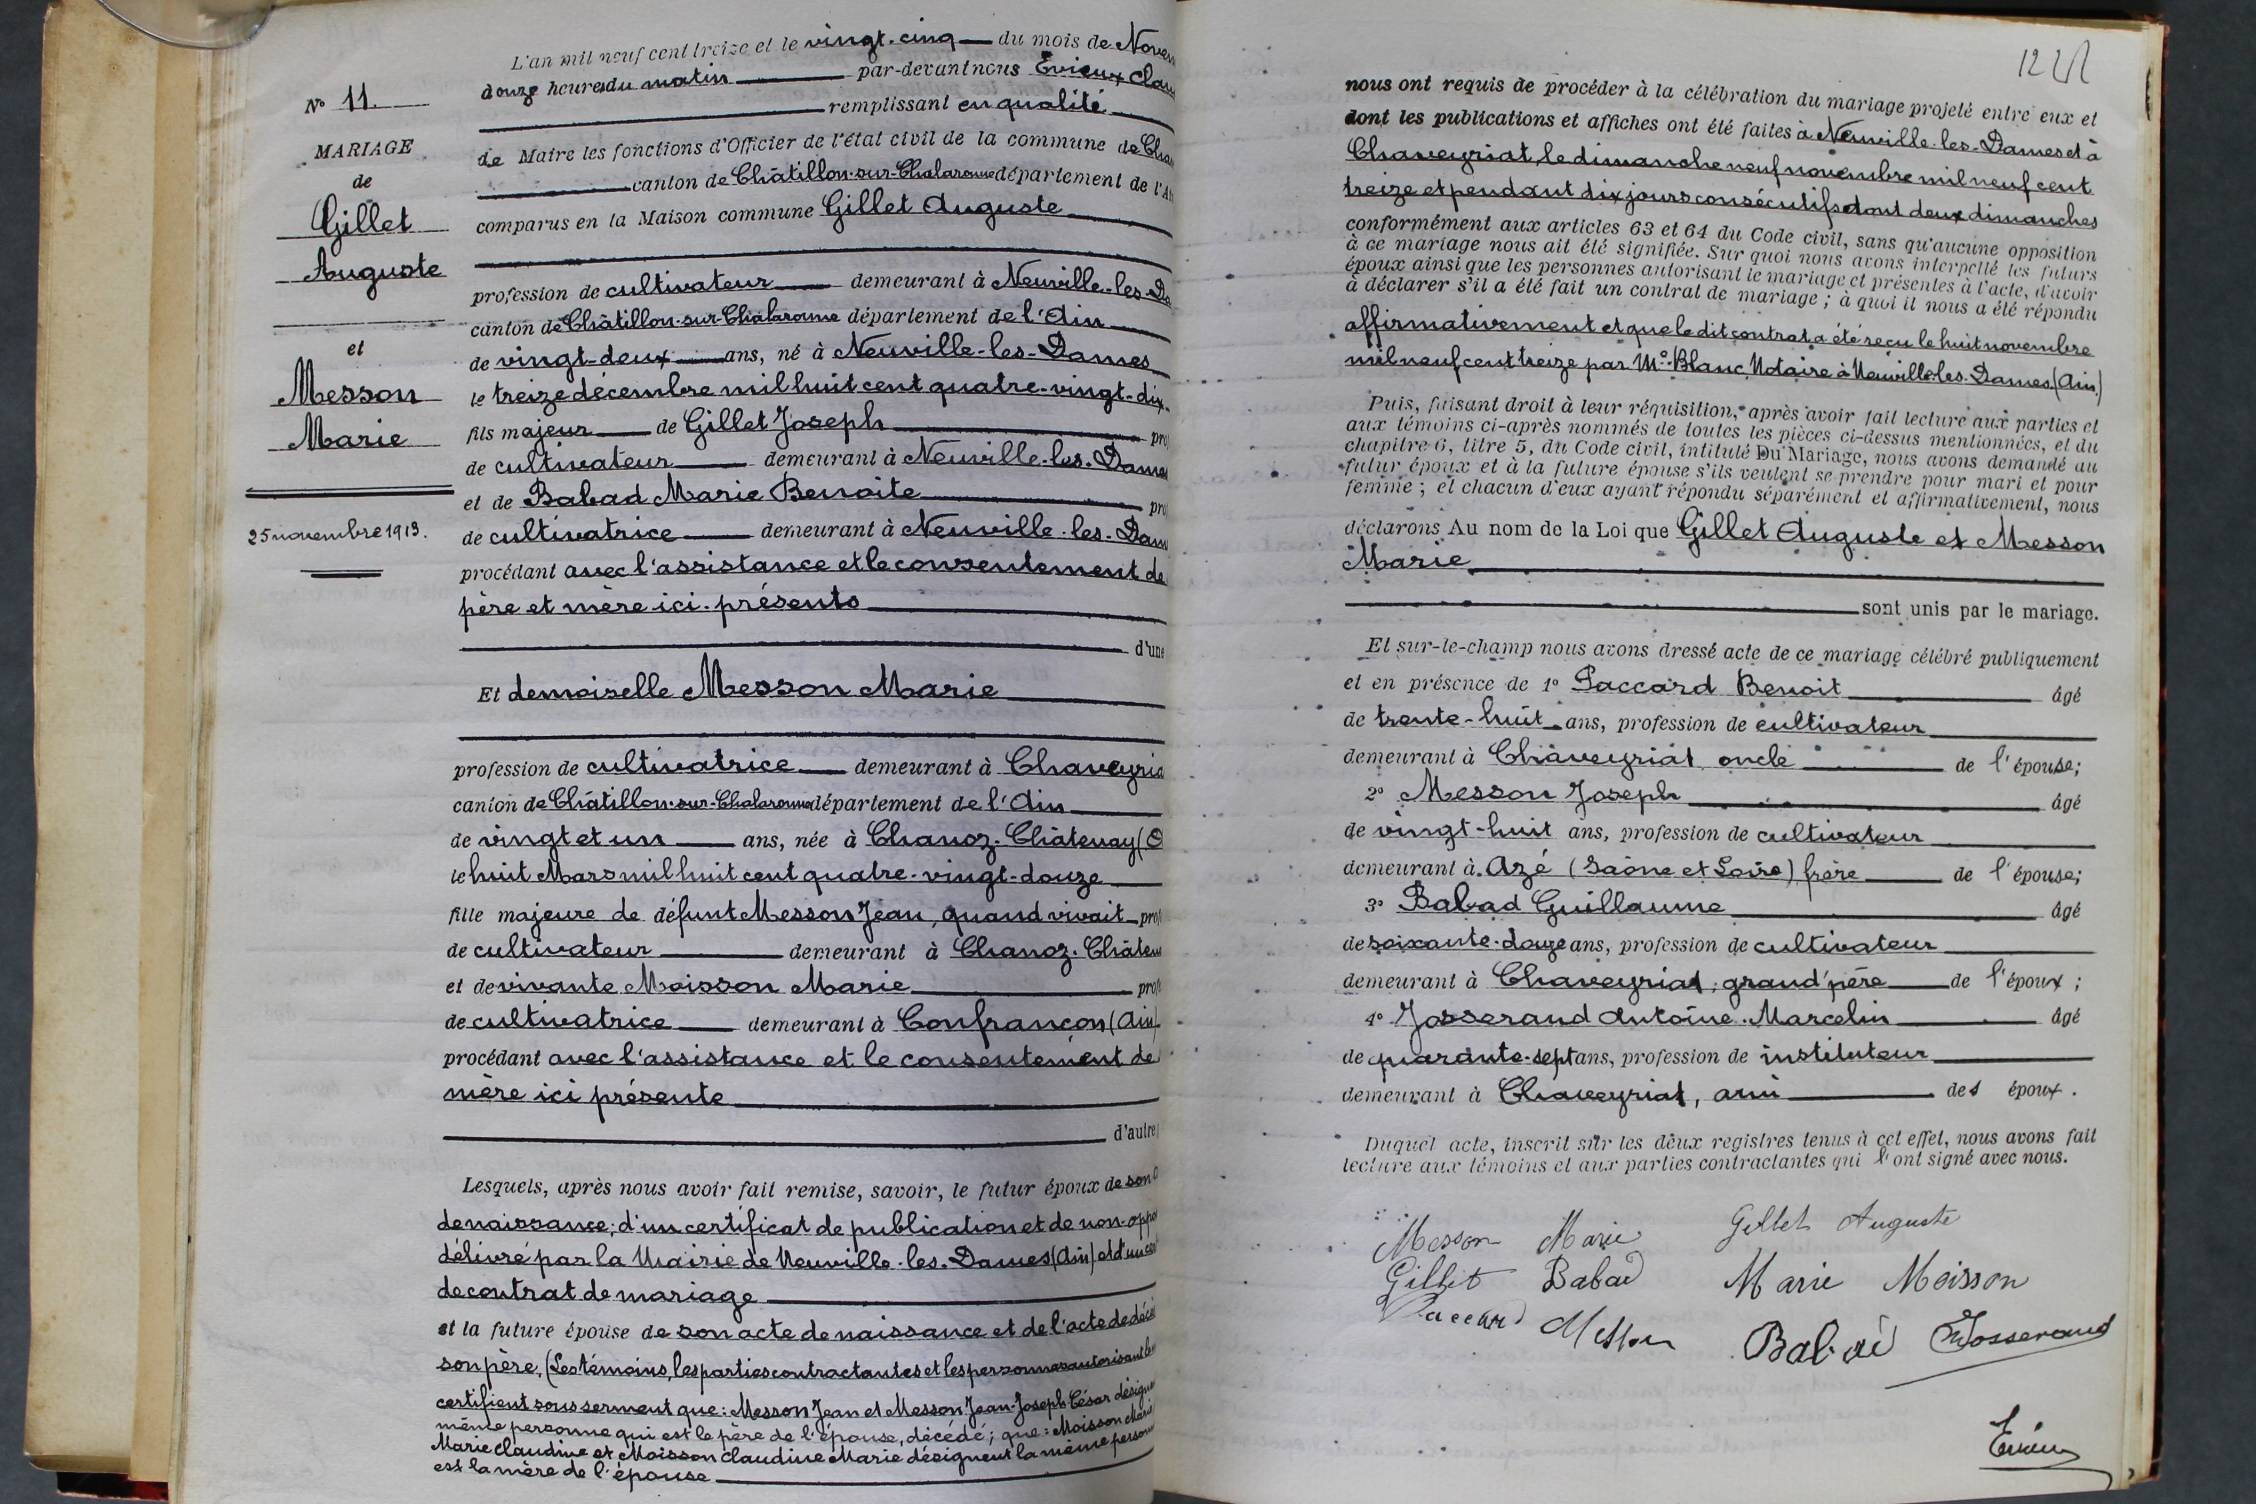 N° 11.
MARIAGE
de
Gillet
Auguste
et
Messon
Marie
25 novembre 1913.
L'an mil neuf cent treize et le vingt-cinq du mois de Novem
douze heures du matin par-devant nous Évieux Clau
remplissant en qualité
de Maire les fonctions d'Officier de l'état civil de la commune de Cha
canton de Châtillon-sur-Chalaronne département de l'A
comparus en la Maison commune Gillet Auguste
profession de cultivateur demeurant à Neuville-les-Da
canton de Châtillon-sur-Chalaronne département de l'Ain
de vingt-deux ans, né à Neuville-les-Dames
le treize décembre mil huit cent quatre-vingt-dix-
fils majeur de Gillet Joseph pro
de cultivateur demeurant à Neuville-les-Dames
et de Babad Marie Benoite pro
de cultivatrice demeurant à Neuville-les-Dam
procédant avec l'assistance et le consentement de
père et mère ici présents
d'une
Et demoiselle Messon Marie
profession de cultivatrice demeurant à Chaveyria
canton de Châtillon-sur-Chalaronne département de l'Ain
de vingt et un ans, née à Chanoz-Châtenay (
le huit Mars mil huit cent quatre-vingt-douze
fille majeure de défunt Messon Jean, quand vivait prof
de cultivateur demeurant à Chanoz-Châten
et de vivante Moisson Marie prof
de cultivatrice demeurant à Confrançon (Ain).
procédant avec l'assistance et le consentement de
mère ici présente
d'autre
Lesquels, après nous avoir fait remise, savoir, le futur époux de son
de naissance; d'un certificat de publication et de non-oppo
délivré par la Mairie de Neuville-les-Dames (Ain) et d'un ce
de contrat de mariage
et la future épouse de son acte de naissance et de l'acte de décè
son père, (Les témoins, les parties contractantes et les personnes autorisant le
certifient sous serment que: Messon Jean et Messon Jean-Joseph César désigne
même personne qui est le père de l'épouse, décédé; que: Moisson Marie
Marie Claudine et Moisson Claudine Marie désignent la même person
est la mère de l'épouse
nous ont requis de procéder à la célébration du mariage projeté entre eux et
dont les publications et affiches ont été faites à Neuville-les-Dames et à
Chaveyriat, le dimanche neuf novembre mil neuf cent
treize et pendant dix jours consécutifs dont deux dimanches
conformément aux articles 63 et 64 du Code civil, sans qu'aucune opposition
à ce mariage nous ait été signifiée. Sur quoi nous avons interpellé les futurs
époux ainsi que les personnes autorisant le mariage et présentes à l'acte, d'avoir
à déclarer s'il a été fait un contrat de mariage; à quoi il nous a été répondu
affirmativement et que le dit contrat a été reçu le huit novembre
mil neuf cent treize par Me Blanc, Notaire à Neuville-les-Dames (Ain)
Puis, faisant droit à leur réquisition, après avoir fait lecture aux parties et
aux témoins ci-après nommés de toutes les pièces ci-dessus mentionnées, et du
chapitre 6, titre 5, du Code civil, intitulé Du Mariage, nous avons demandé au
futur époux et à la future épouse s'ils veulent se prendre pour mari et pour
femme; et chacun d'eux ayant répondu séparément et affirmativement, nous
déclarons Au nom de la Loi que Gillet Auguste et Messon
Marie
sont unis par le mariage.
Et sur-le-champ nous avons dressé acte de ce mariage célébré publiquement
et en présence de 1° Paccard Benoit âgé
de trente-huit ans, profession de cultivateur
demeurant à Chaveyriat oncle de l'épouse;
2° Messon Joseph âgé
de vingt-huit ans, profession de cultivateur
demeurant à Azé (Saône et Loire) frère de l'épouse;
3° Babad Guillaume âgé
de soixante-douze ans, profession de cultivateur
demeurant à Chaveyriat, grand'père de l'époux;
4° Josserand Antoine-Marcelin âgé
de quarante-sept ans, profession de instituteur
demeurant à Chaveyriat, ami des époux.
Duquel acte, inscrit sur les deux registres tenus à cet effet, nous avons fait
lecture aux témoins et aux parties contractantes qui l'ont signé avec nous.
Messon Marie Gillet Auguste
Gillet Babad Marie Moisson
Paccard Messon Babad Josserand
Évieux